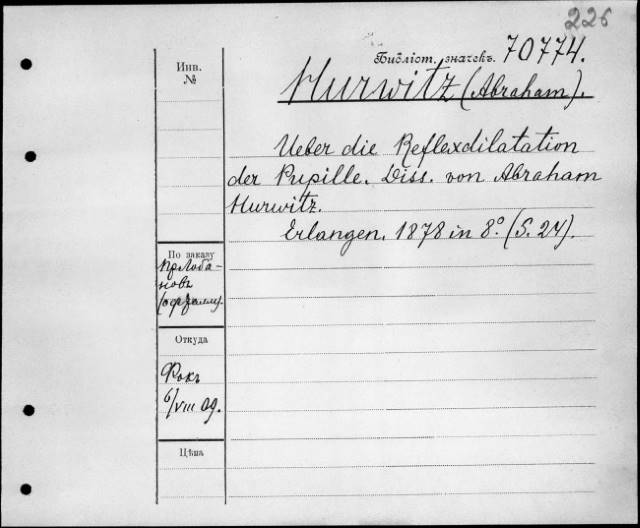 226
Библіот. значекъ. 70774.
Инв.
№
Hurwitz (Abraham).
Ueber die Reflexdilatation
der Pupille. Diss. von Abraham
Hurwitz.
Erlangen. 1878 in 8° (S. 24).
По заказу
пр. Лоба-
новъ
Откуда
Фокъ
6/VIII 09.
Цѣна